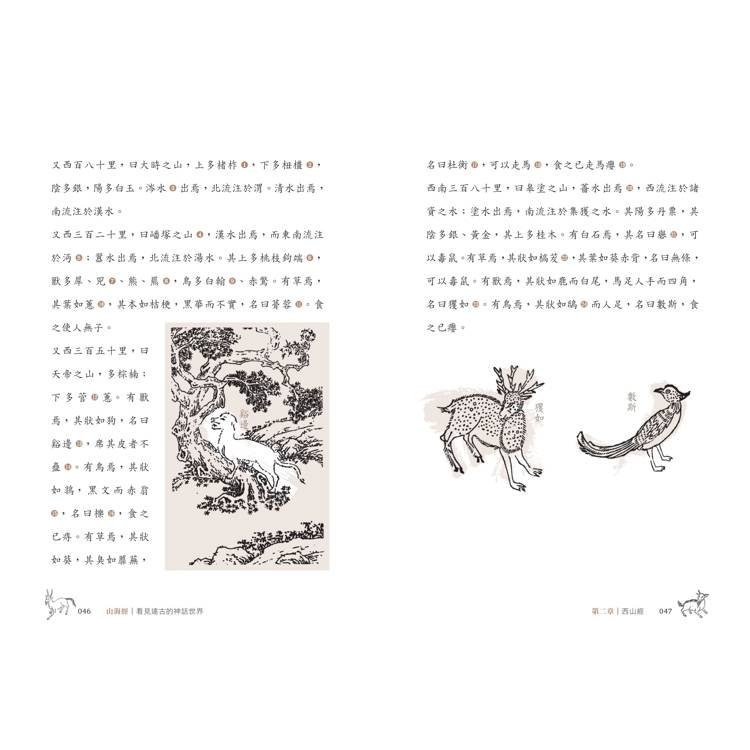 又西百八十里，曰大時之山，上多楮柞❶，下多杻橿❷，
陰多銀，陽多白玉。涔水❸出焉，北流注於渭。清水出焉，
南流注於漢水。
又西三百二十里，曰嶓塚之山❹，漢水出焉，而東南流注
於沔❺；囂水出焉，北流注於湯水。其上多桃枝鉤端❻，
獸多犀、兕❼、熊、羆❽，鳥多白翰❾、赤鷩。有草焉，
其葉如蕙❿，其本如桔梗，黑華而不實，名曰蓇蓉⓫。食
之使人無子。
又西三百五十里，曰
天帝之山，多棕楠；
下多菅⓬蕙。有獸
焉，其狀如狗，名曰
谿邊⓭，席其皮者不
蠱⓮。有鳥焉，其狀
如鶉，黑文而赤翁
⓯，名曰櫟⓰，食之
已痔。有草焉，其狀
如葵，其臭如蘼蕪，
谿邊
046 山海經｜看見遠古的神話世界
名曰杜衡⓱，可以走馬⓲，食之已走馬癭⓳。
西南三百八十里，曰皋塗之山，薔水出焉⓴，西流注於諸
資之水；塗水出焉，南流注於集獲之水。其陽多丹粟，其
陰多銀、黃金，其上多桂木。有白石焉，其名曰礜㉑，可
以毒鼠。有草焉，其狀如槁茇㉒，其葉如葵赤背，名曰無條，
可以毒鼠。有獸焉，其狀如鹿而白尾，馬足人手而四角，
名曰玃如㉓。有鳥焉，其狀如鴟㉔而人足，名曰數斯，食
之已癭。
玃如
數斯
第二章｜西山經 047